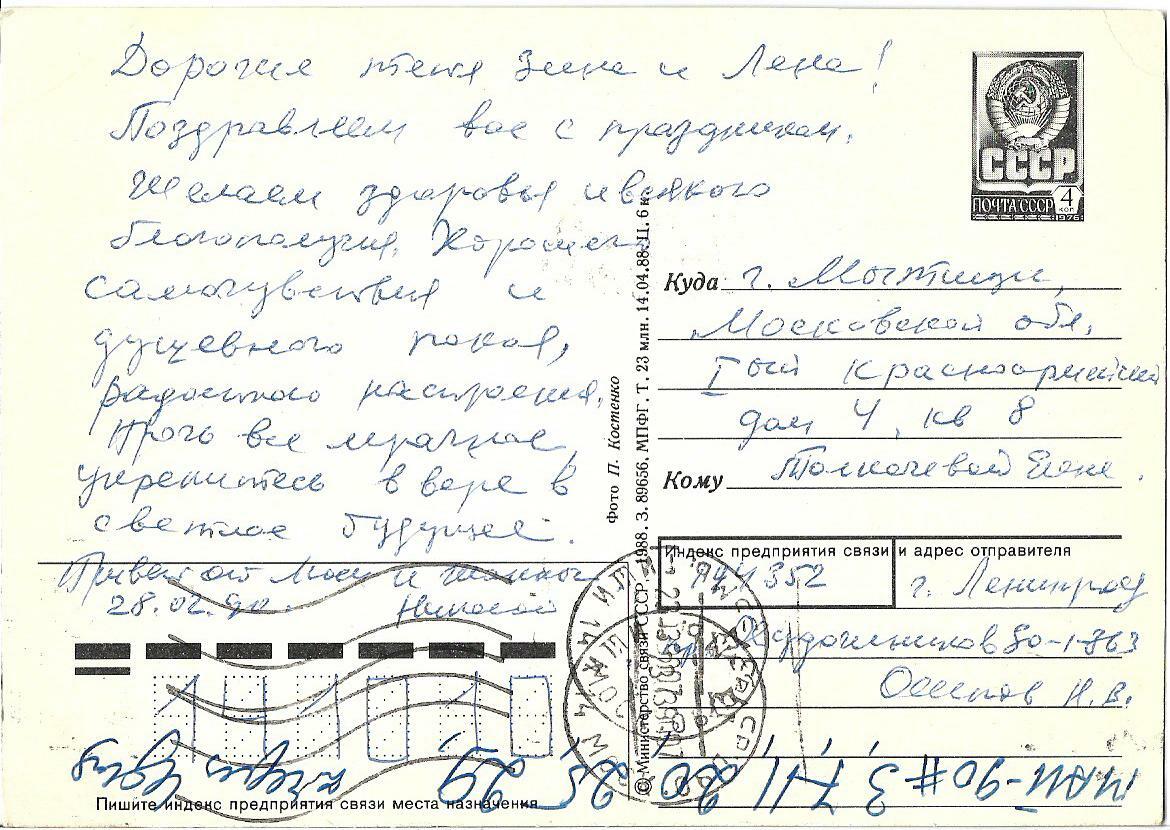 Дорогие тетя Зина и Лена!
Поздравляем вас с праздником.
Желаем здоровья и всякого
благополучия. Хорошего
самочувствия и
душевного покоя,
радостного настроения.
Прочь все мрачное,
укрепитесь в вере в
светлое будущее.
Привет от Люси и
28.02.90. Николай
СССР
ПОЧТА СССР 4 коп
1976
Куда г. Мытищи,
Московской обл.
дом 4, кв 8
Кому Толкачевой Зине.
Индекс предприятия связи и адрес отправителя
г. Ленинград
Художников 30-1-363
Осипов Н.В.
Фото П. Костенко
© Министерство связи СССР. 1988. З. 89656. МПФГ. Т. 23 млн. 14.04.88. Ц. 6 к.
Пишите индекс предприятия связи места назначения
МАЙ-90 # 3, 7, 11, 20, 25, 29